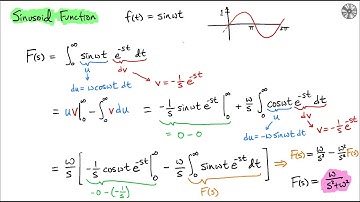 Sinusoid Function f(t) = sinωt
1 π 2π
F(s) = ∫₀^∞ sinωt e^-st dt
u dv
du = ωcosωt dt v = -1/s e^-st
= uv|₀^∞ - ∫₀^∞ v du = -1/s sinωt e^-st |₀^∞ + ω/s ∫₀^∞ cosωt e^-st dt
= 0 - 0 u dv
du = -ω sinωt dt v = -1/s e^-st
= ω/s [ -1/s cosωt e^-st |₀^∞ - ω/s ∫₀^∞ sinωt e^-st dt ] ⇒ F(s) = ω/s² - ω²/s² F(s)
-0 - (-1/s) F(s) F(s) = ω/(s²+ω²)